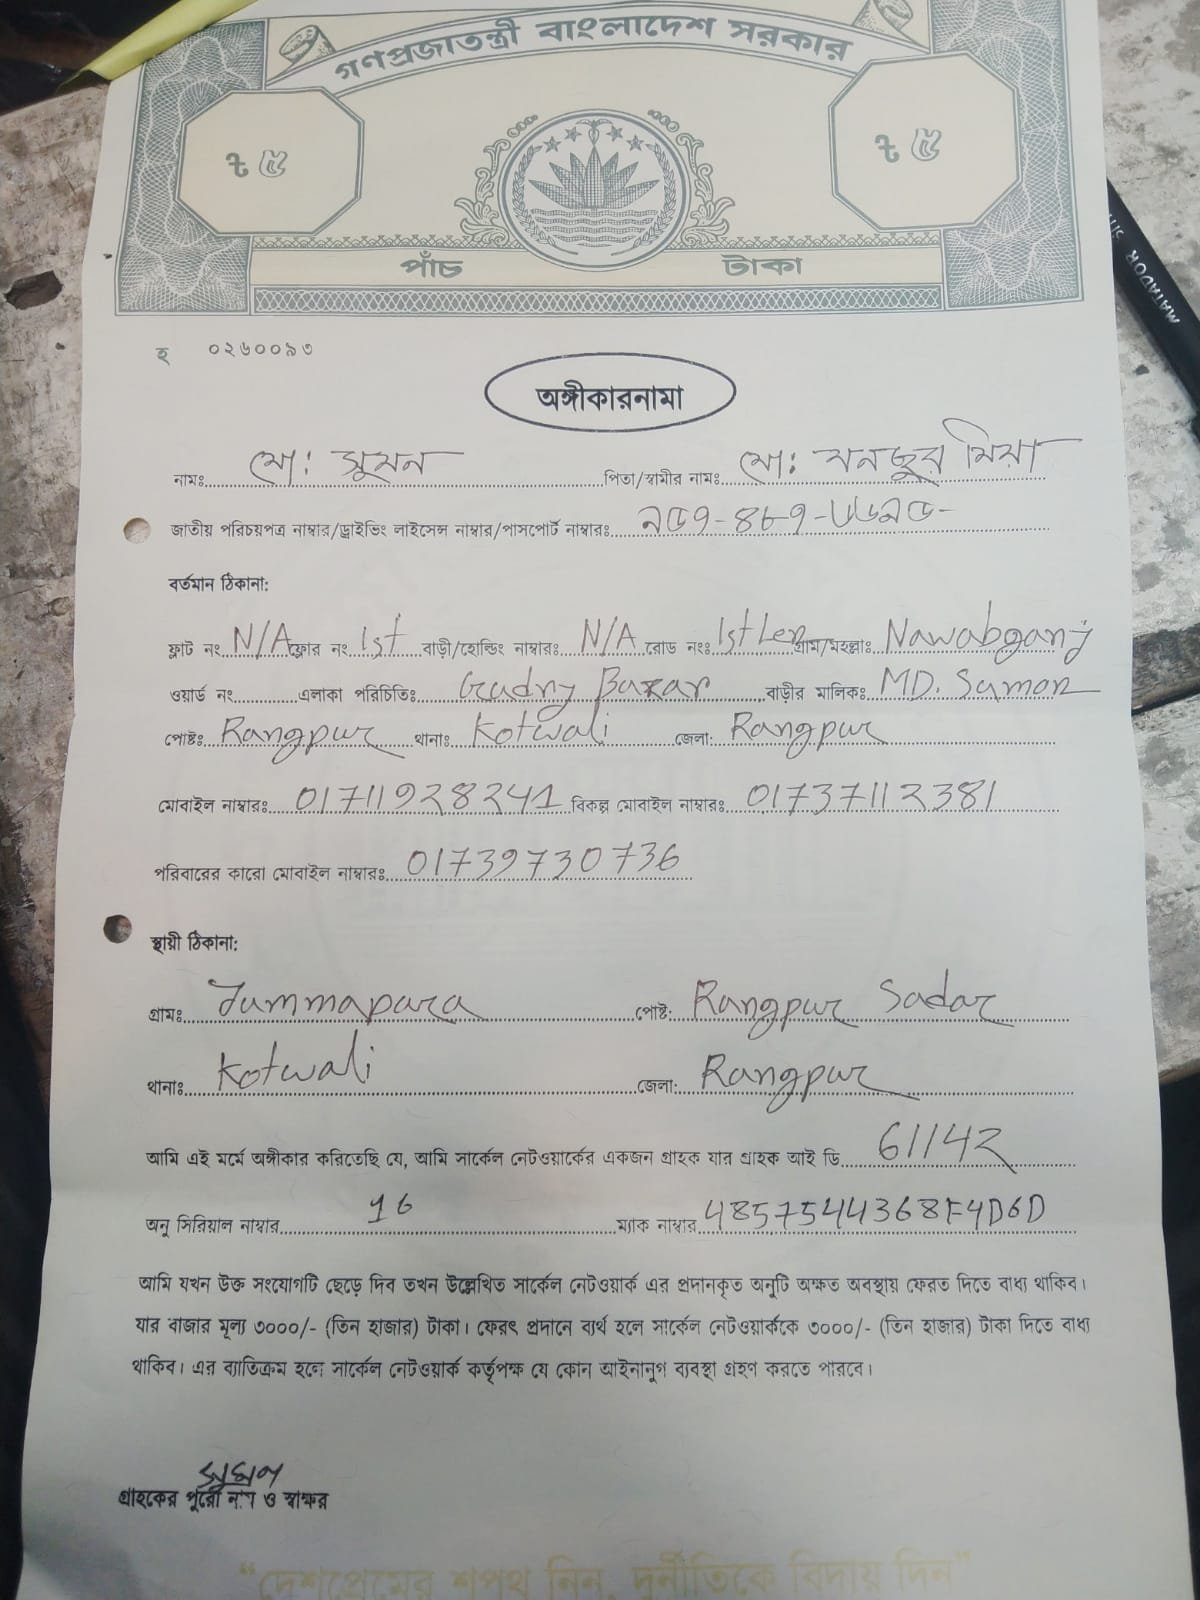 গণপ্রজাতন্ত্রী বাংলাদেশ সরকার
৳ ৫ ৳ ৫
পাঁচ টাকা
MATADOR
হ ০২৬০০৯৩
অঙ্গীকারনামা
নামঃ মো: সুমন পিতা/স্বামীর নামঃ মো: মনজুর মিয়া
জাতীয় পরিচয়পত্র নাম্বার/ড্রাইভিং লাইসেন্স নাম্বার/পাসপোর্ট নাম্বারঃ
বর্তমান ঠিকানা:
ফ্লাট নং N/A ফ্লোর নং 1st বাড়ী/হোল্ডিং নাম্বারঃ N/A রোড নংঃ 1st Len গ্রাম/মহল্লাঃ Nawabganj
ওয়ার্ড নং এলাকা পরিচিতিঃ Bazar বাড়ীর মালিকঃ MD. Sumon
পোষ্টঃ Rangpur থানাঃ Kotwali জেলা: Rangpur
মোবাইল নাম্বারঃ 01711928241 বিকল্প মোবাইল নাম্বারঃ 01737112381
পরিবারের কারো মোবাইল নাম্বারঃ 01739730736
স্থায়ী ঠিকানা:
গ্রামঃ Jummapara পোষ্ট: Rangpur Sadar
থানাঃ Kotwali জেলা: Rangpur
আমি এই মর্মে অঙ্গীকার করিতেছি যে, আমি সার্কেল নেটওয়ার্কের একজন গ্রাহক যার গ্রাহক আই ডি 61142
অনু সিরিয়াল নাম্বার 16 ম্যাক নাম্বার 4857544368F4D6D
আমি যখন উক্ত সংযোগটি ছেড়ে দিব তখন উল্লেখিত সার্কেল নেটওয়ার্ক এর প্রদানকৃত অনুটি অক্ষত অবস্থায় ফেরত দিতে বাধ্য থাকিব।
যার বাজার মূল্য ৩০০০/- (তিন হাজার) টাকা। ফেরৎ প্রদানে ব্যর্থ হলে সার্কেল নেটওয়ার্ককে ৩০০০/- (তিন হাজার) টাকা দিতে বাধ্য
থাকিব। এর ব্যাতিক্রম হলে সার্কেল নেটওয়ার্ক কর্তৃপক্ষ যে কোন আইনানুগ ব্যবস্থা গ্রহণ করতে পারবে।
সুমন
গ্রাহকের পুরো নাম ও স্বাক্ষর
“দেশপ্রেমের শপথ নিন, দুর্নীতিকে বিদায় দিন”